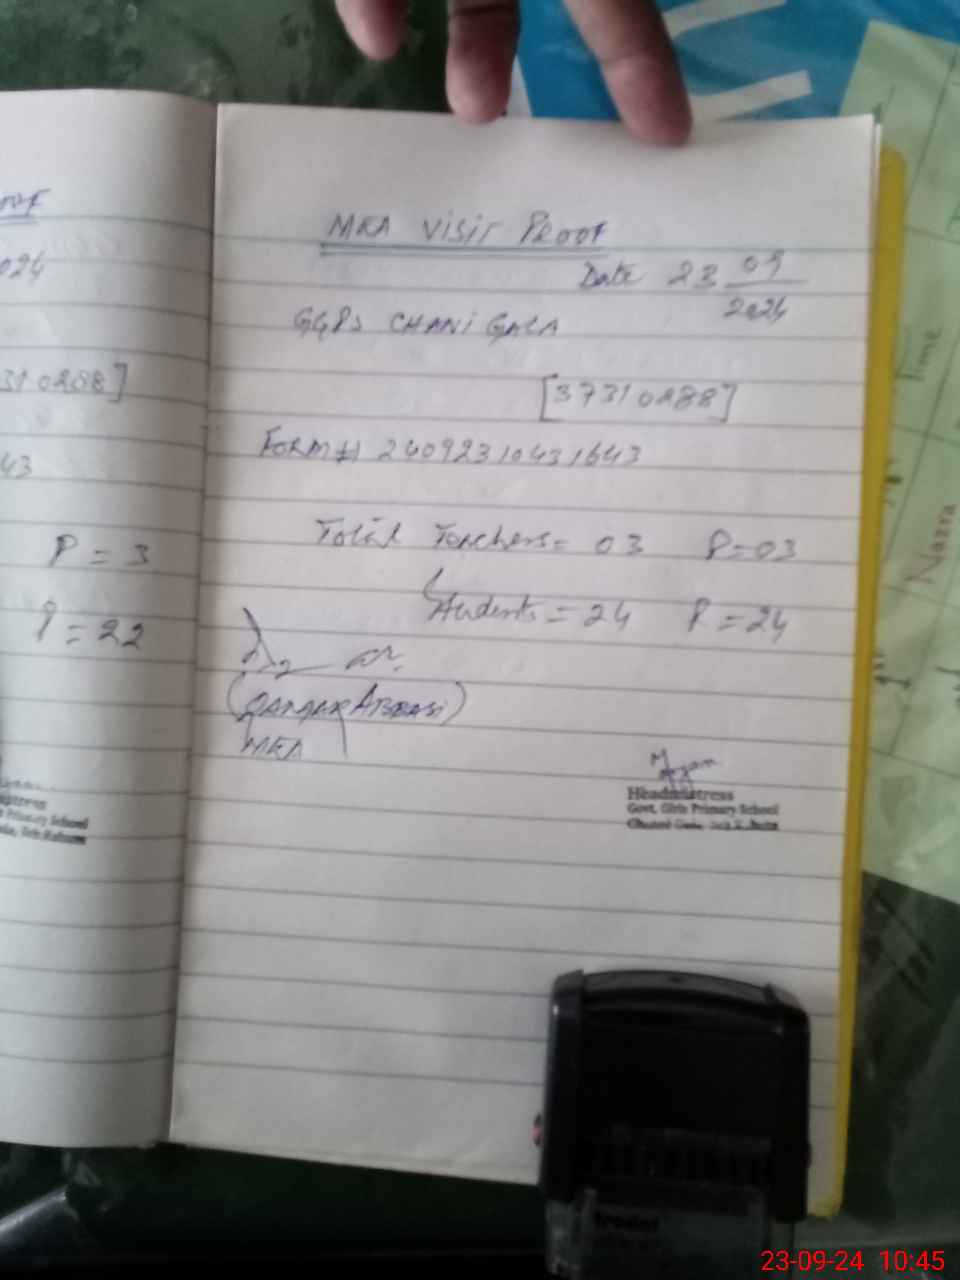 024
310288]
43
P = 3
P = 22
Primary School
MEA VISIT PROOF
Date 23 09
2024
GGPS CHANI GALA
[37310288]
FORM # 24092310431643
Total Teachers = 03 P = 03
Students = 24 P = 24
(QAMAR ABBASI)
MEA
Headmistress
Govt. Girls Primary School
Time
Nazra
23-09-24 10:45